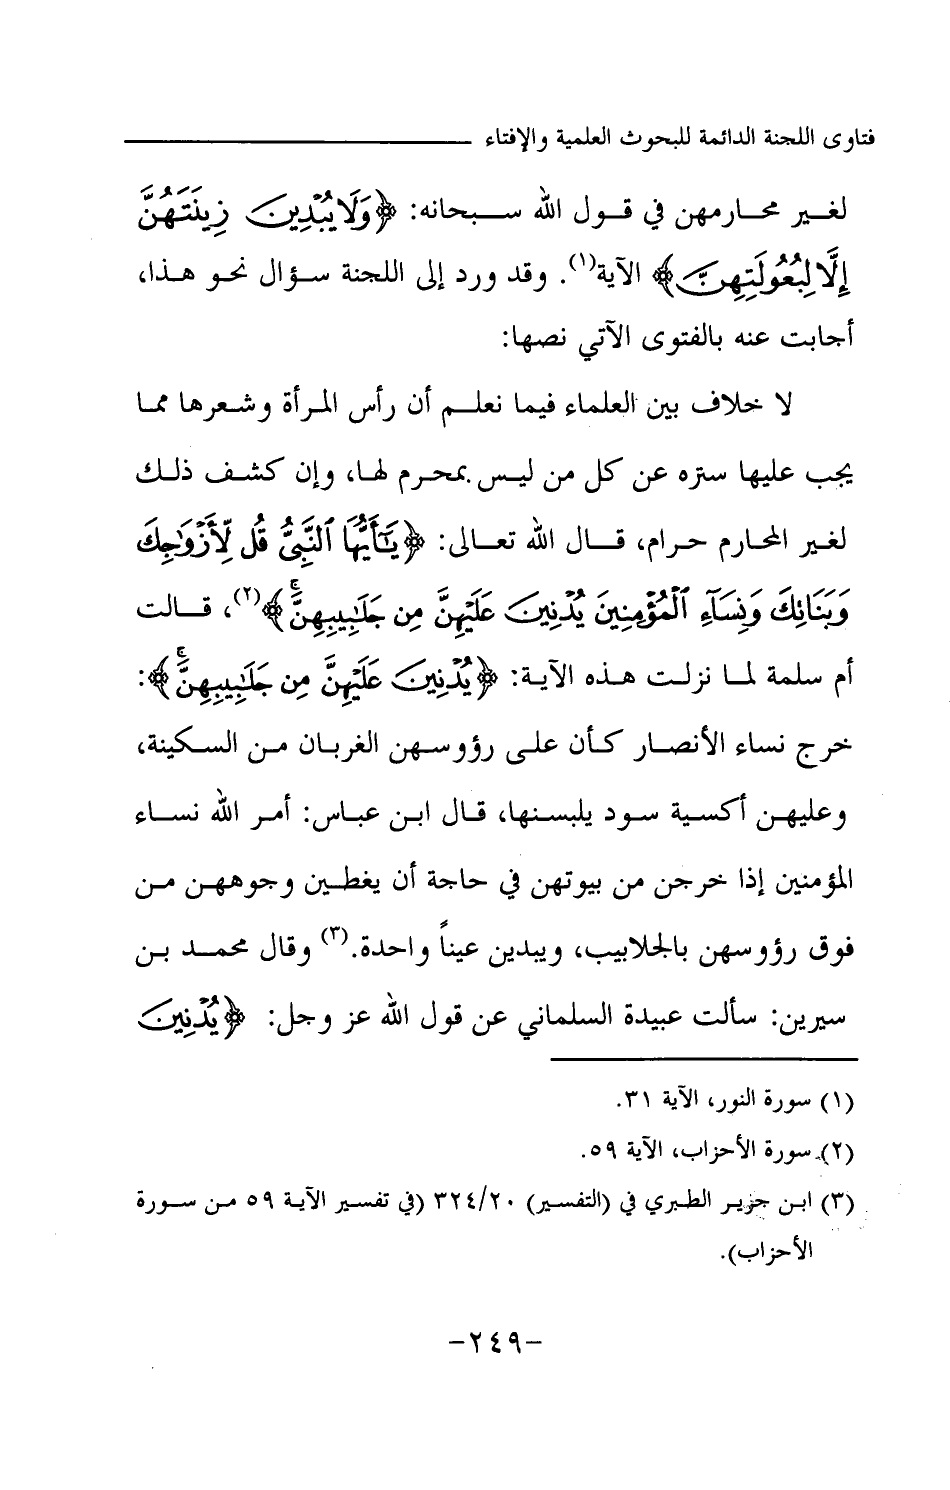 فتاوى اللجنة الدائمة للبحوث العلمية والإفتاء
لغير محارمهن في قول الله سبحانه: ﴿وَلَا يُبْدِينَ زِينَتَهُنَّ
إِلَّا لِبُعُولَتِهِنَّ﴾ الآية(١). وقد ورد إلى اللجنة سؤال نحو هذا،
أجابت عنه بالفتوى الآتي نصها:
لا خلاف بين العلماء فيما نعلم أن رأس المرأة وشعرها مما
يجب عليها ستره عن كل من ليس بمحرم لها، وإن كشف ذلك
لغير المحارم حرام، قال الله تعالى: ﴿يَٰٓأَيُّهَا ٱلنَّبِيُّ قُل لِّأَزْوَٰجِكَ
وَبَنَاتِكَ وَنِسَآءِ ٱلْمُؤْمِنِينَ يُدْنِينَ عَلَيْهِنَّ مِن جَلَٰبِيبِهِنَّ ۚ﴾(٢)، قالت
أم سلمة لما نزلت هذه الآية: ﴿يُدْنِينَ عَلَيْهِنَّ مِن جَلَٰبِيبِهِنَّ ۚ﴾:
خرج نساء الأنصار كأن على رؤوسهن الغربان من السكينة،
وعليهن أكسية سود يلبسنها، قال ابن عباس: أمر الله نساء
المؤمنين إذا خرجن من بيوتهن في حاجة أن يغطين وجوههن من
فوق رؤوسهن بالجلابيب، ويبدين عيناً واحدة.(٣) وقال محمد بن
سيرين: سألت عبيدة السلماني عن قول الله عز وجل: ﴿يُدْنِينَ
(١) سورة النور، الآية ٣١.
(٢) سورة الأحزاب، الآية ٥٩.
(٣) ابن جرير الطبري في (التفسير) ٣٢٤/٢٠ (في تفسير الآية ٥٩ من سورة
الأحزاب).
-٢٤٩-